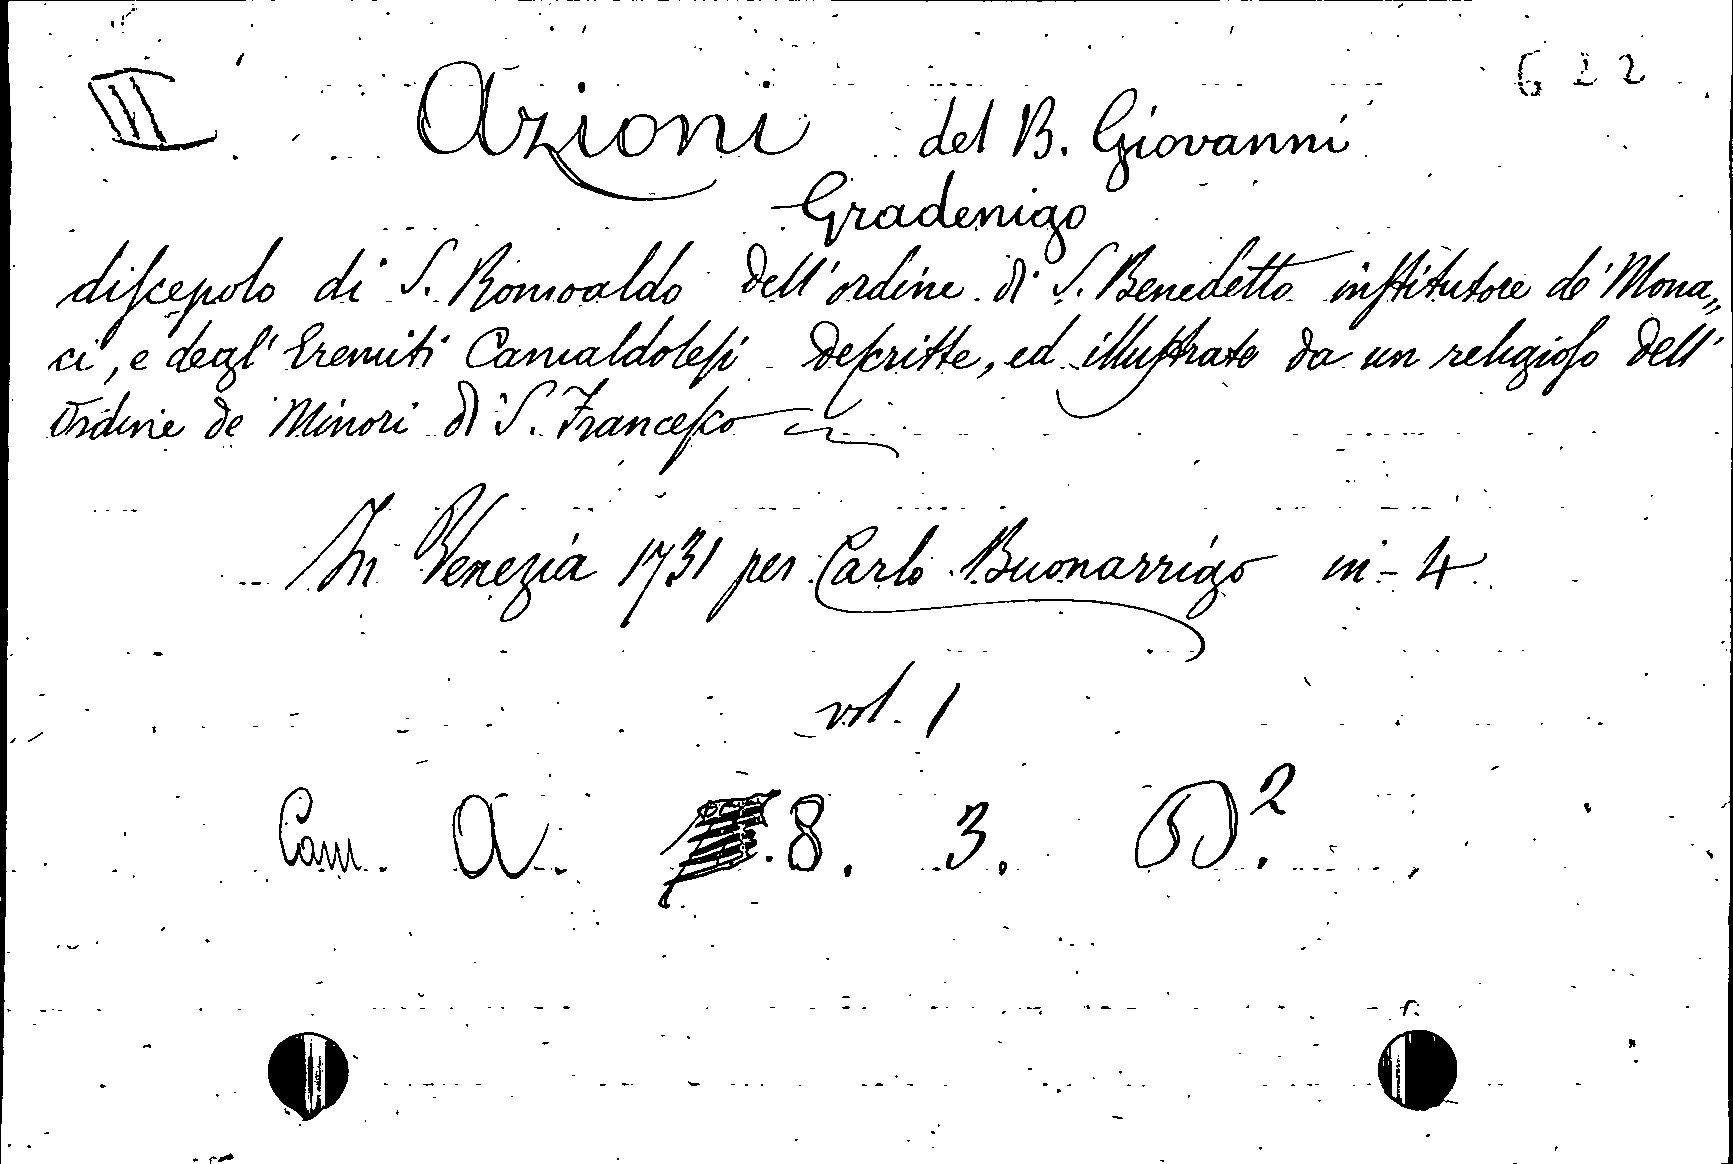 III Azioni del B. Giovanni 622
Gradenigo
diſcepolo di S. Romoaldo dell' ordine di S. Benedetto inſtitutore de' Mona„
ci, e degl' Eremiti Camaldoleſi deſcritte, ed illuſtrate da un religioſo dell'
Ordine de Minori di S. Franceſco
In Venezia 1731 per Carlo Buonarrigo in-4
vol. 1
Cam. A. 8. 3.